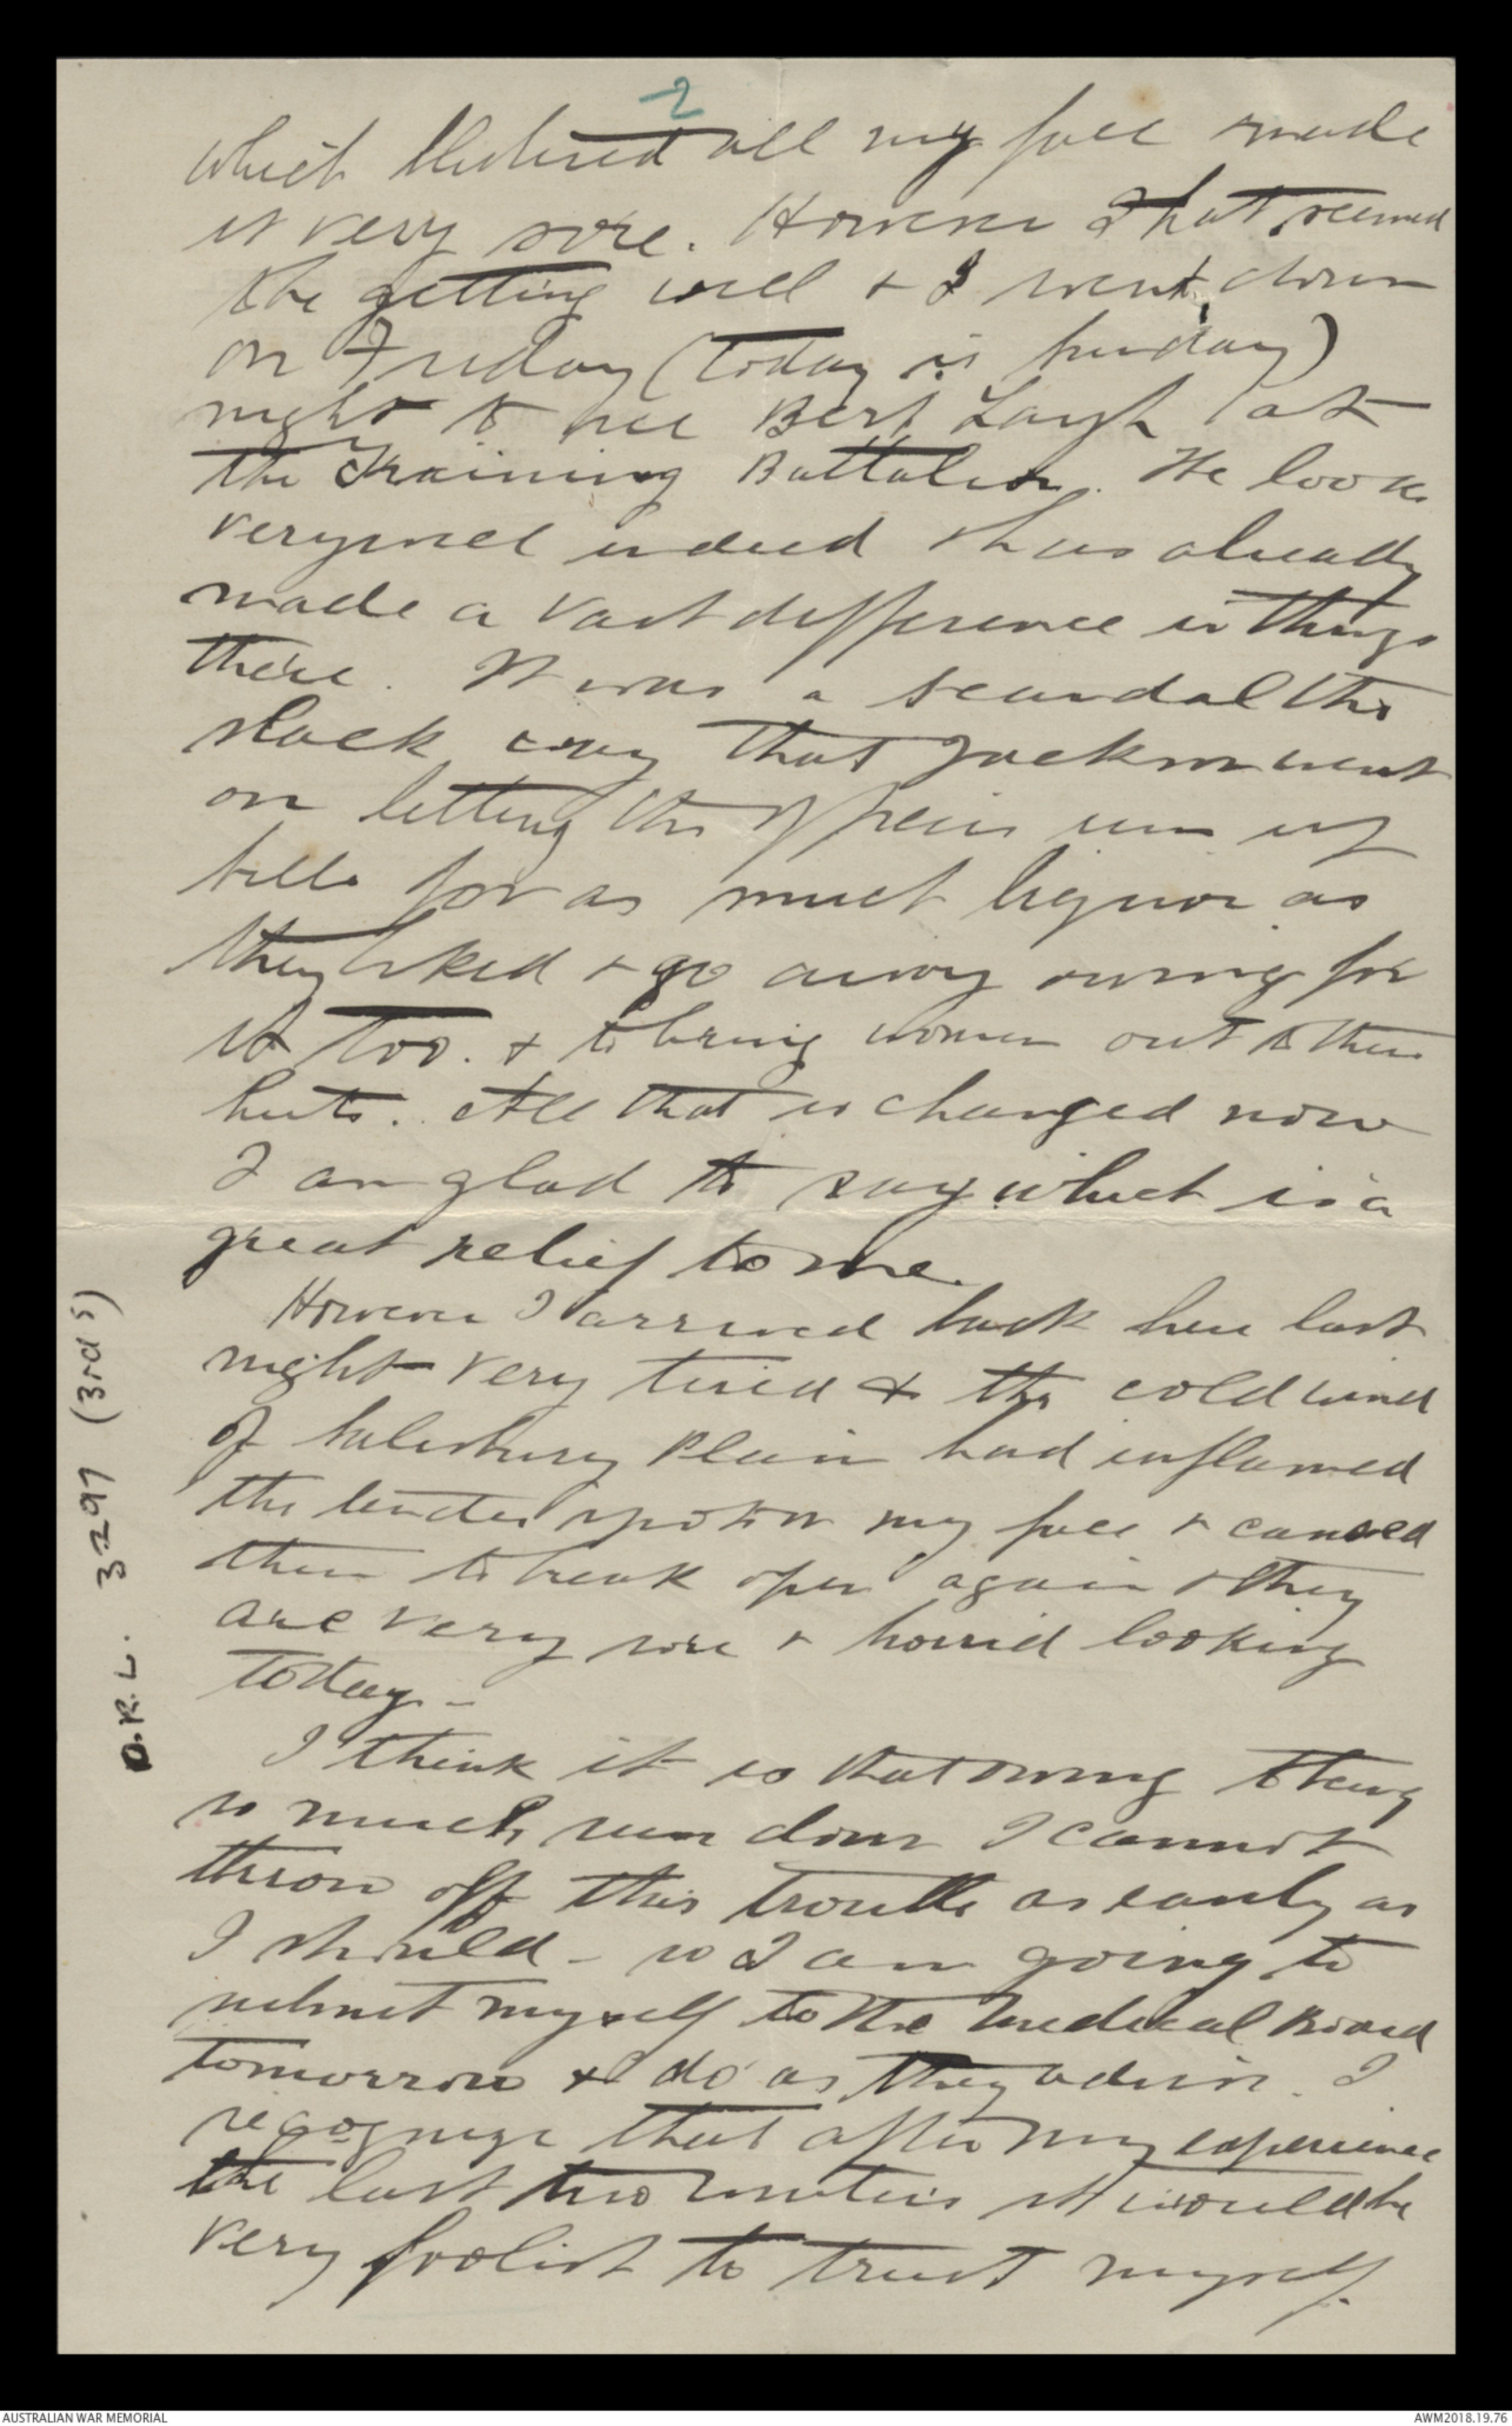 2
which blistered all my face made
it very sore. However that seemed
to be getting well & I went down
on Friday (today is Sunday)
night to see Bert Layh at
the Training Battalion. He looks
very well indeed & has already
made a vast difference in things
there. It was a scandal the
slack way that Jackson went
on letting the officers run up
bills for as much liquor as
they liked & go away owing for
it too. & to bring women out to their
huts. All that is changed now
I am glad to say which is a
great relief to me.
However I arrived back here last
night very tired & the cold wind
of Salisbury Plain had inflamed
the tender spots on my face & caused
them to break open again & they
are very sore & horrid looking
today -
I think it is that owing to being
so much run down I cannot
throw off this trouble as easily as
I should - so I am going to
submit myself to the Medical Board
tomorrow & do as they advise. I
recognize that after my experience
the last two winters it would be
very foolish to trust myself
O.R.L. 3297 (3rd s)
AUSTRALIAN WAR MEMORIAL
AWM2018.19.76